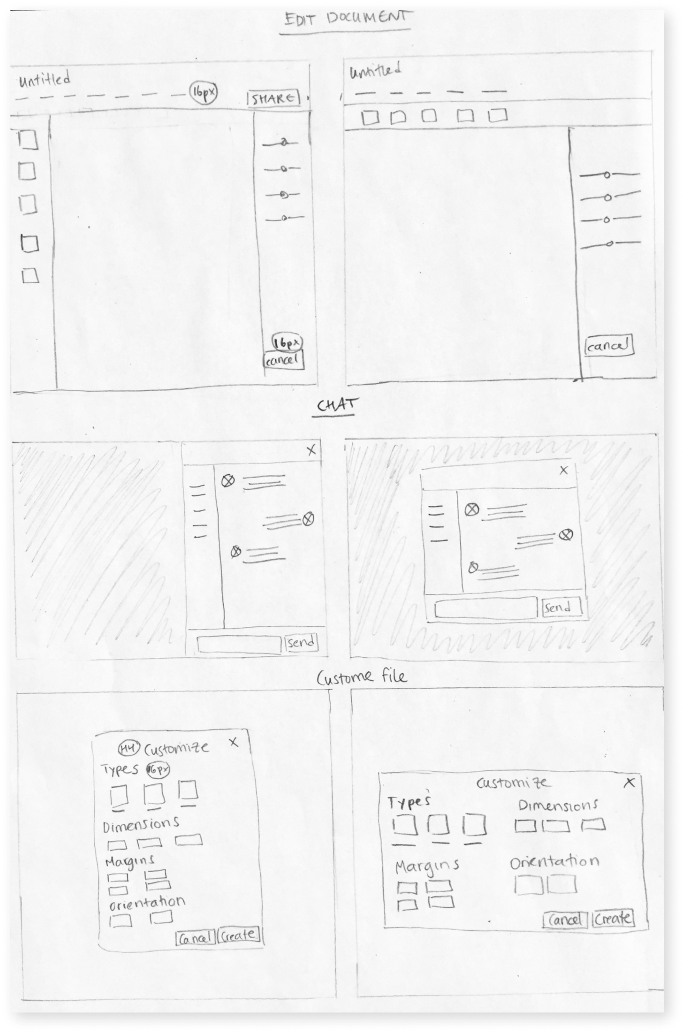 EDIT DOCUMENT
Untitled
16px
SHARE
16px
cancel
Untitled
cancel
CHAT
X
send
X
send
Custome file
H4 Customize X
Types 16px
Dimensions
Margins
Orientation
Cancel Create
Customize X
Types
Dimensions
Margins
Orientation
Cancel Create